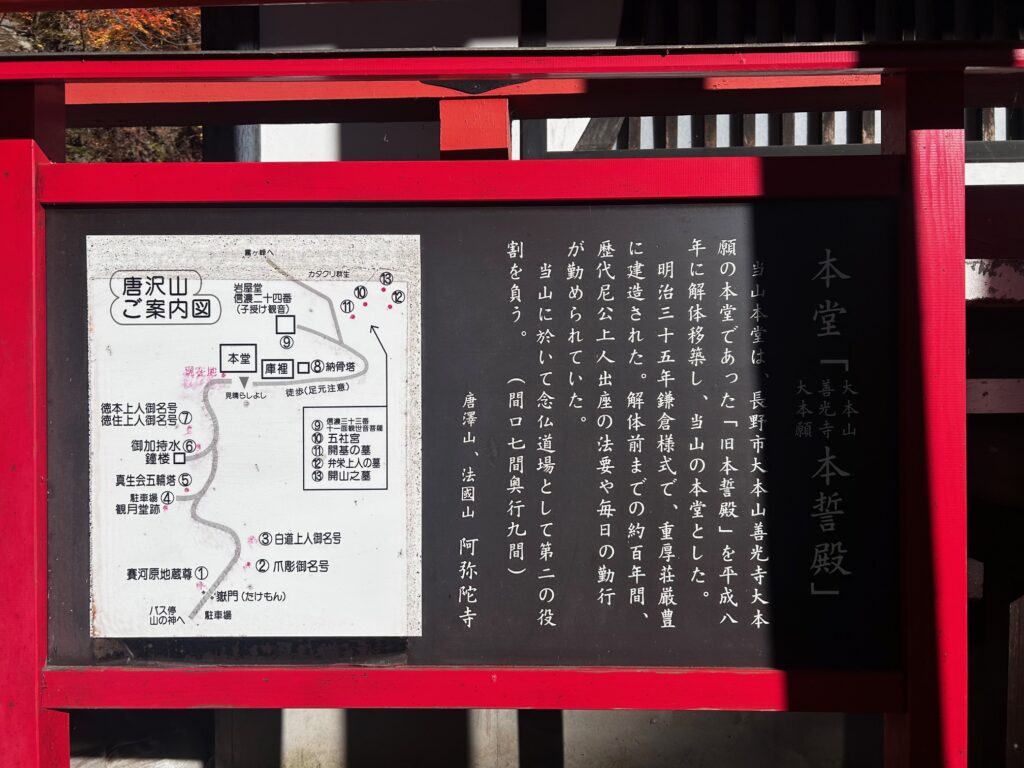 本堂「大本山善光寺大本願本誓殿」
当山本堂は、長野市大本山善光寺大本
願の本堂であった「旧本誓殿」を平成八
年に解体移築し、当山の本堂とした。
明治三十五年鎌倉様式で、重厚荘厳豊
に建造された。解体前までの約百年間、
歴代尼公上人出座の法要や毎日の勤行
が勤められていた。
当山に於いて念仏道場として第二の役
割を負う。（間口七間奥行九間）
唐澤山、法國山 阿弥陀寺
唐沢山
ご案内図
霧ヶ峰へ
カタクリ群生
岩屋堂
信濃二十四番
(子授け観音)
⑨
⑩
⑪
⑫
⑬
本堂
庫裡
⑧納骨塔
現在地
見晴らしよし
徒歩(足元注意)
徳本上人御名号
徳住上人御名号⑦
御加持水⑥
鐘楼
真生会五輪塔⑤
駐車場④
観月堂跡
⑨信濃三十三番
十一面観世音菩薩
⑩五社宮
⑪開基の墓
⑫弁栄上人の墓
⑬開山之墓
③白道上人御名号
②爪彫御名号
賽河原地蔵尊①
嶽門(たけもん)
バス停
山の神へ
駐車場